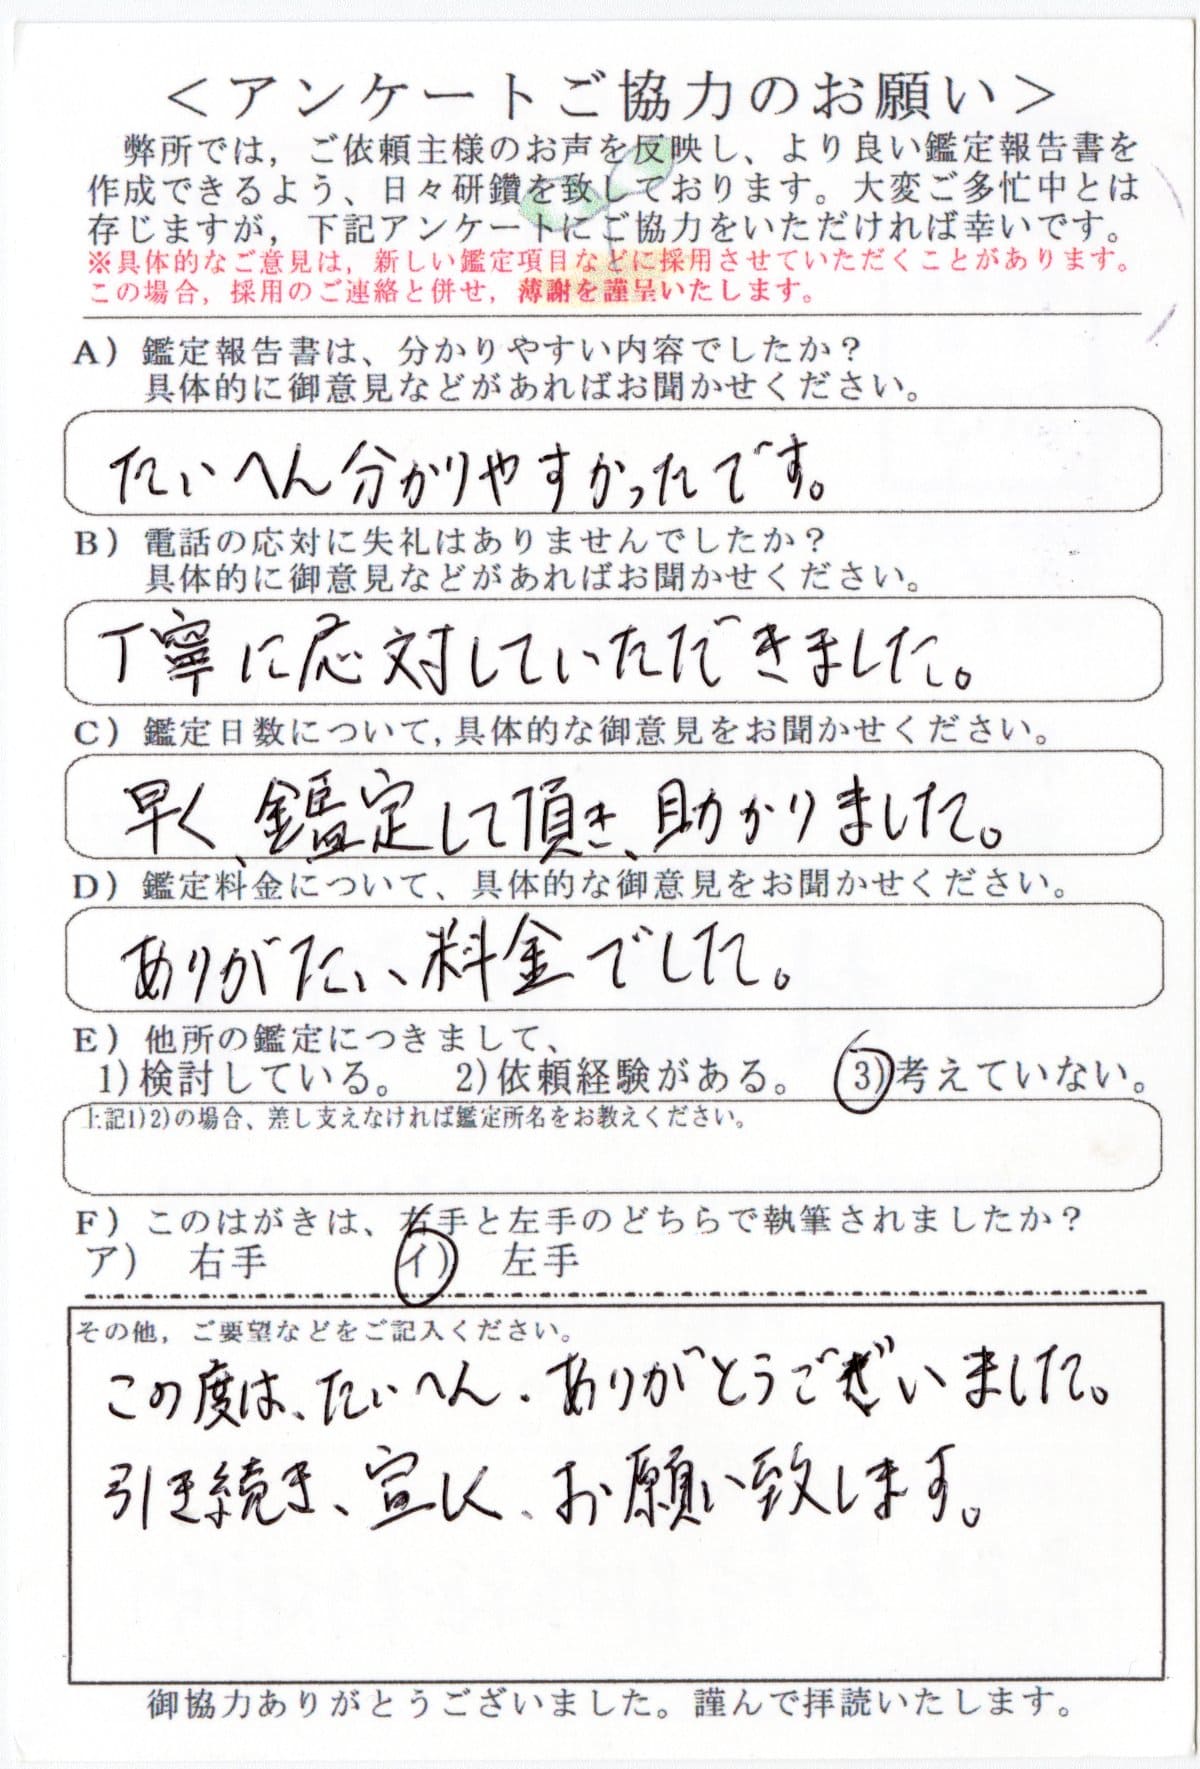 ＜アンケートご協力のお願い＞
弊所では，ご依頼主様のお声を反映し、より良い鑑定報告書を
作成できるよう、日々研鑽を致しております。大変ご多忙中とは
存じますが，下記アンケートにご協力をいただければ幸いです。
※具体的なご意見は，新しい鑑定項目などに採用させていただくことがあります。
この場合，採用のご連絡と併せ，薄謝を謹呈いたします。
A）鑑定報告書は、分かりやすい内容でしたか？
具体的に御意見などがあればお聞かせください。
たいへん分かりやすかったです。
B）電話の応対に失礼はありませんでしたか？
具体的に御意見などがあればお聞かせください。
丁寧に応対していただきました。
C）鑑定日数について，具体的な御意見をお聞かせください。
早く、鑑定して頂き、助かりました。
D）鑑定料金について、具体的な御意見をお聞かせください。
ありがたい、料金でした。
E）他所の鑑定につきまして、
1)検討している。 2)依頼経験がある。 3)考えていない。
上記1)2)の場合、差し支えなければ鑑定所名をお教えください。
F）このはがきは、右手と左手のどちらで執筆されましたか？
ア） 右手 イ） 左手
その他，ご要望などをご記入ください。
この度は、たいへん、ありがとうございました。
引き続き、宜しく、お願い致します。
御協力ありがとうございました。謹んで拝読いたします。